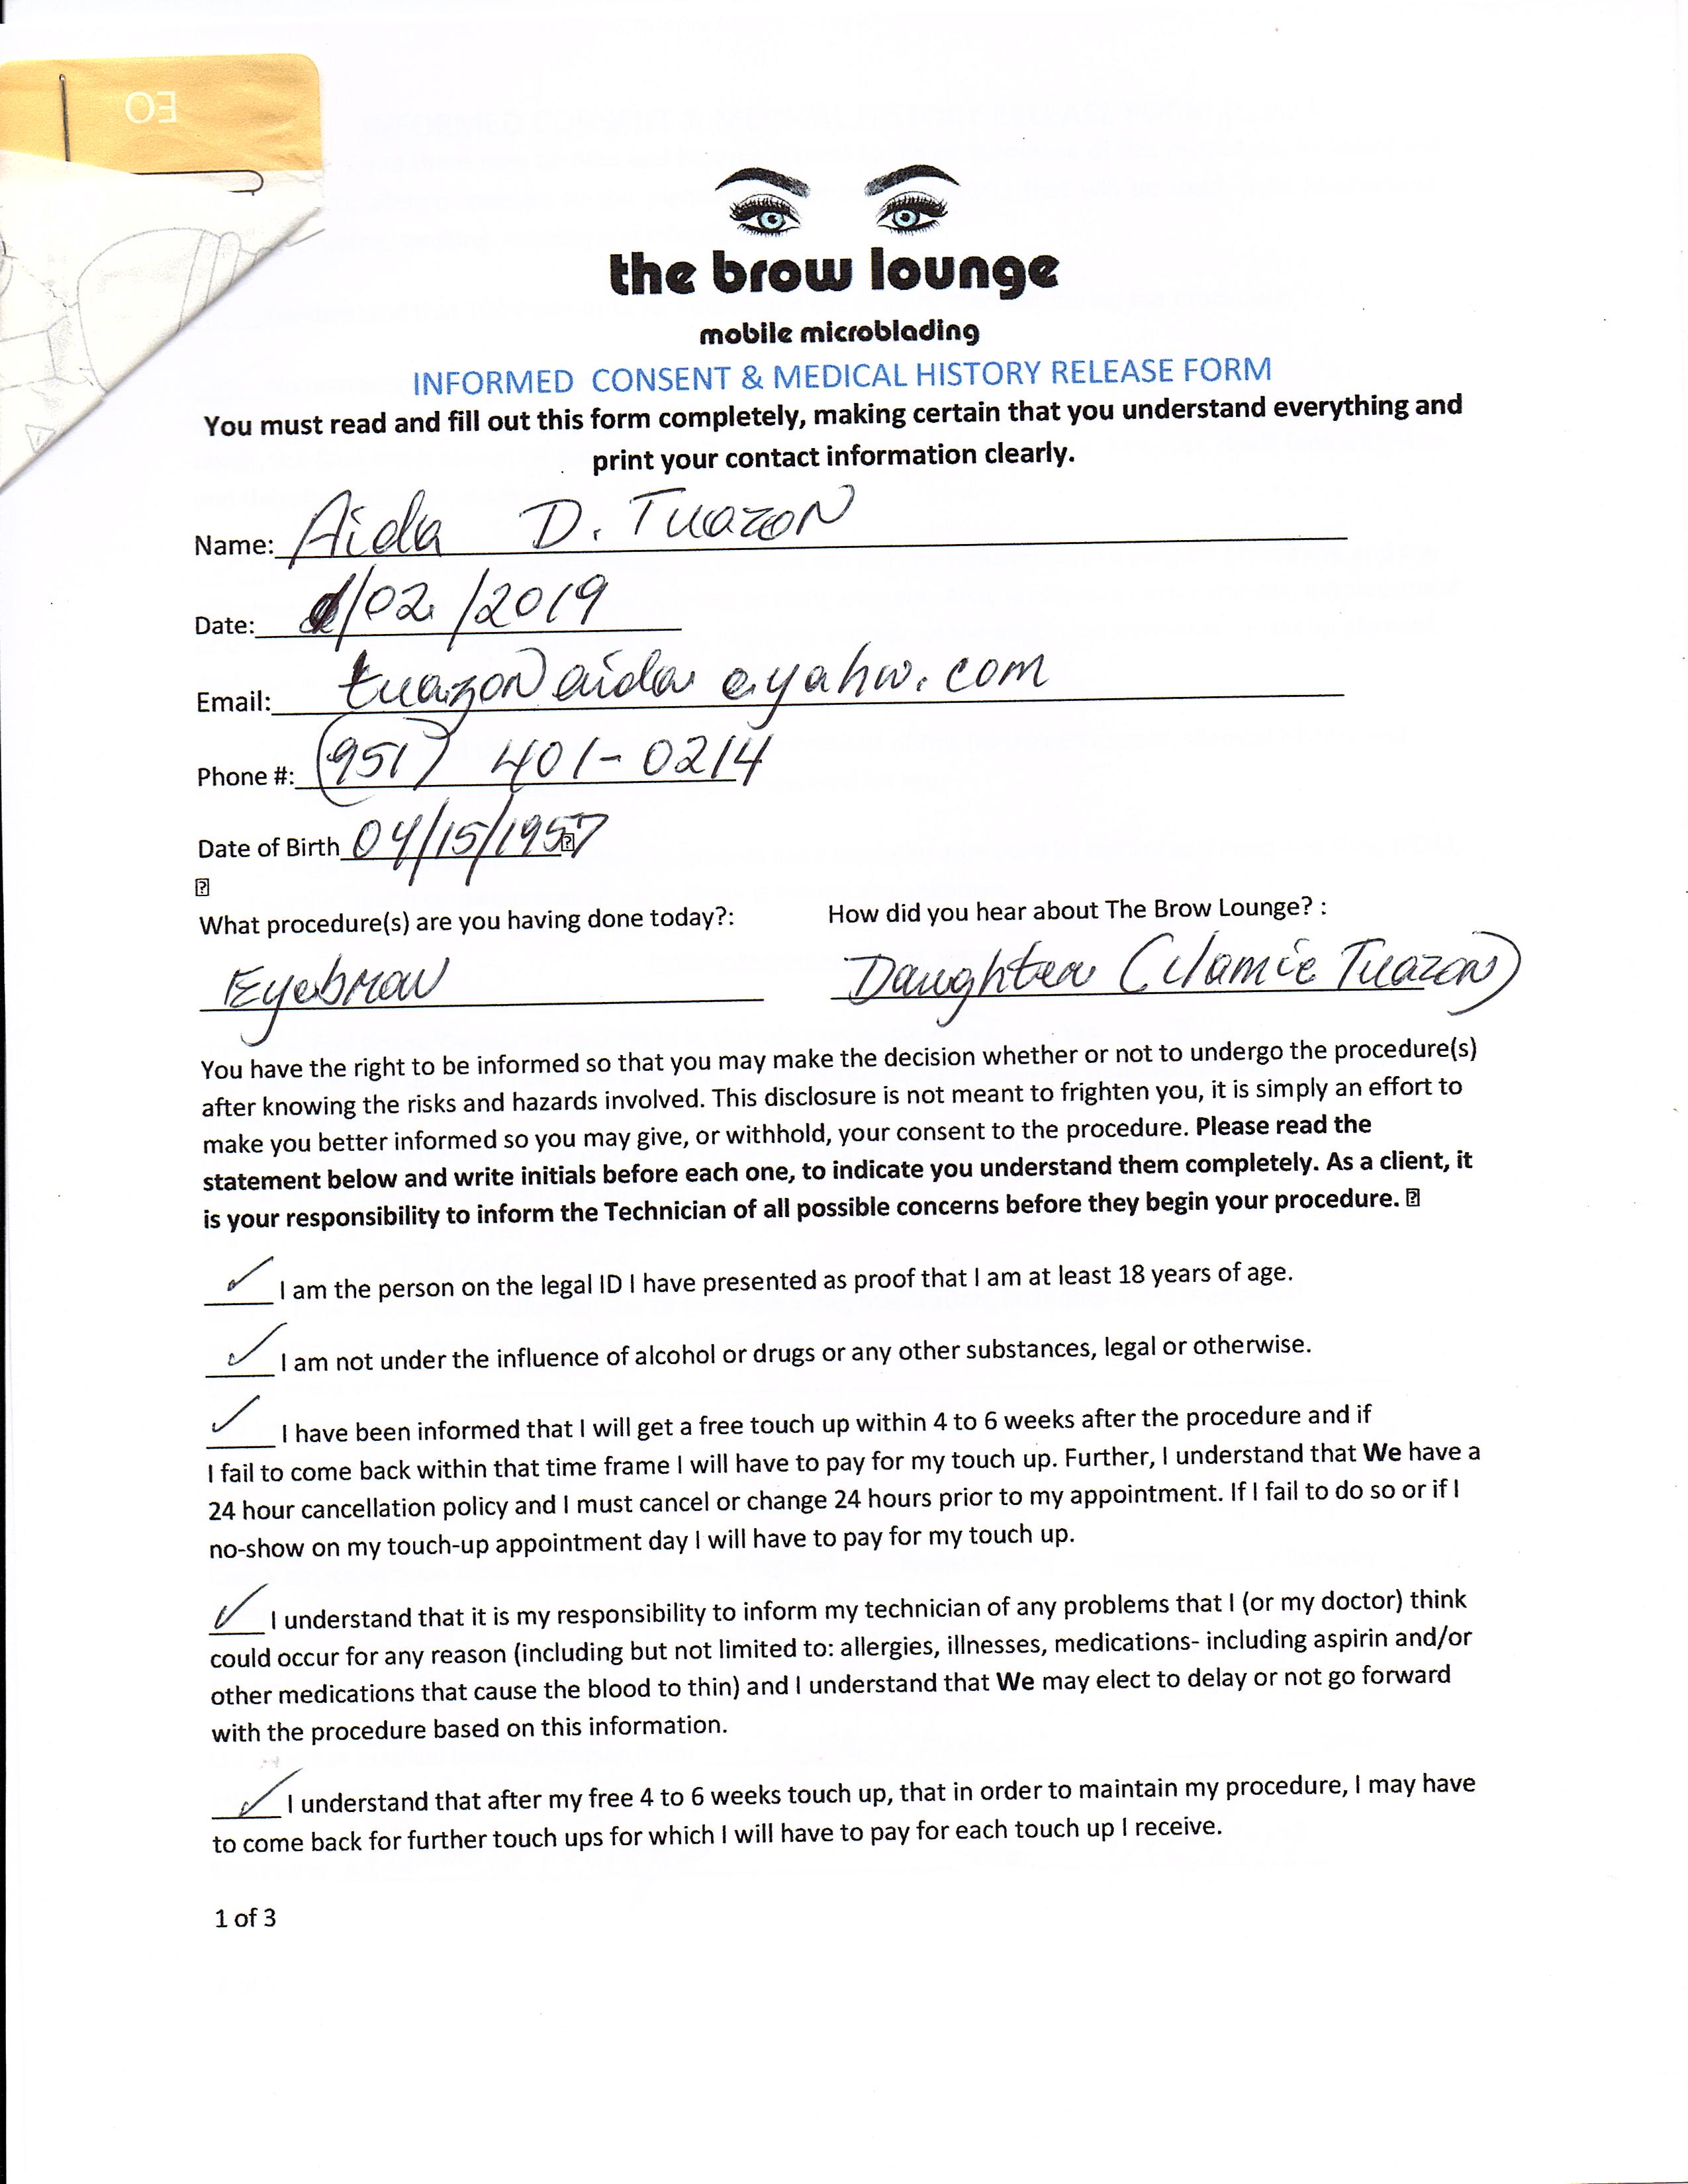 EO
the brow lounge
mobile microblading
INFORMED CONSENT & MEDICAL HISTORY RELEASE FORM
You must read and fill out this form completely, making certain that you understand everything and
print your contact information clearly.
Name: Aida D. Tuazon
Date: /02/2019
Email: tuazonaida@yahoo.com
Phone #: (951) 401-0214
Date of Birth 04/15/1957
What procedure(s) are you having done today?: How did you hear about The Brow Lounge? :
Eyebrow Daughter (Jamie Tuazon)
You have the right to be informed so that you may make the decision whether or not to undergo the procedure(s)
after knowing the risks and hazards involved. This disclosure is not meant to frighten you, it is simply an effort to
make you better informed so you may give, or withhold, your consent to the procedure. Please read the
statement below and write initials before each one, to indicate you understand them completely. As a client, it
is your responsibility to inform the Technician of all possible concerns before they begin your procedure.
✓ I am the person on the legal ID I have presented as proof that I am at least 18 years of age.
✓ I am not under the influence of alcohol or drugs or any other substances, legal or otherwise.
✓ I have been informed that I will get a free touch up within 4 to 6 weeks after the procedure and if
I fail to come back within that time frame I will have to pay for my touch up. Further, I understand that We have a
24 hour cancellation policy and I must cancel or change 24 hours prior to my appointment. If I fail to do so or if I
no-show on my touch-up appointment day I will have to pay for my touch up.
✓ I understand that it is my responsibility to inform my technician of any problems that I (or my doctor) think
could occur for any reason (including but not limited to: allergies, illnesses, medications- including aspirin and/or
other medications that cause the blood to thin) and I understand that We may elect to delay or not go forward
with the procedure based on this information.
✓ I understand that after my free 4 to 6 weeks touch up, that in order to maintain my procedure, I may have
to come back for further touch ups for which I will have to pay for each touch up I receive.
1 of 3